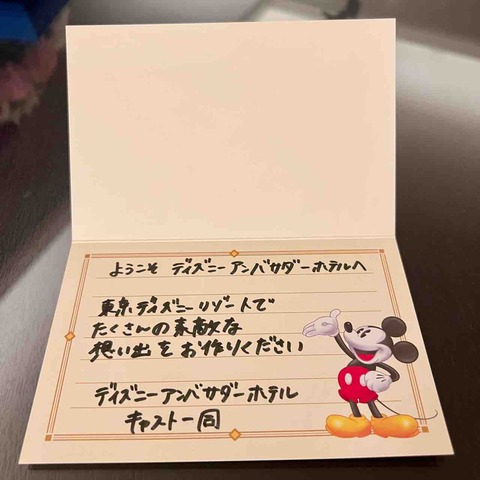 ようこそ ディズニーアンバサダーホテルへ
東京ディズニーリゾートで
たくさんの素敵な
想い出をお作りください
ディズニーアンバサダーホテル
キャスト一同